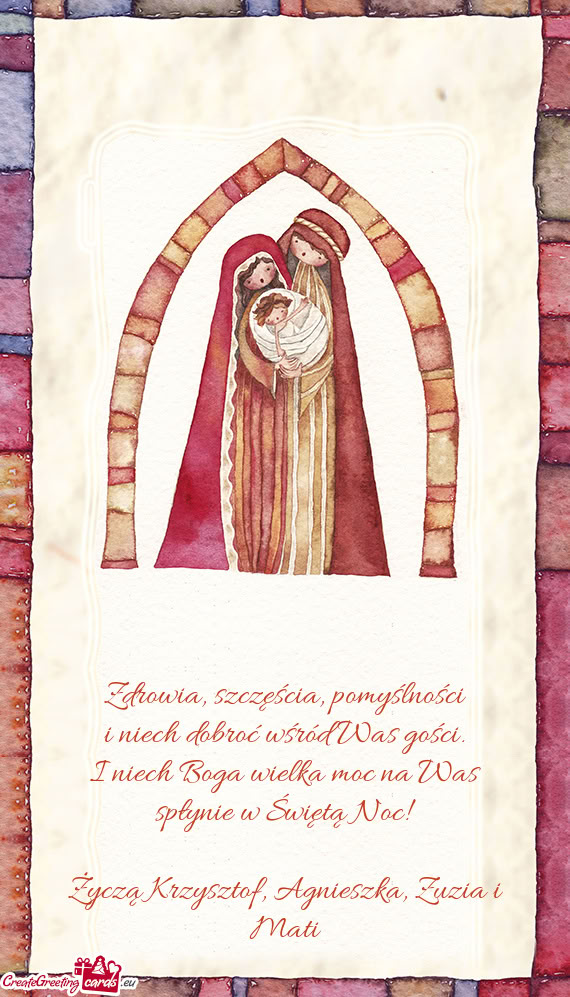 Zdrowia, szczęścia, pomyślności
i niech dobroć wśród Was gości.
I niech Boga wielka moc na Was
spłynie w Świętą Noc!
Życzą Krzysztof, Agnieszka, Zuzia i
Mati
CreateGreeting cards .eu